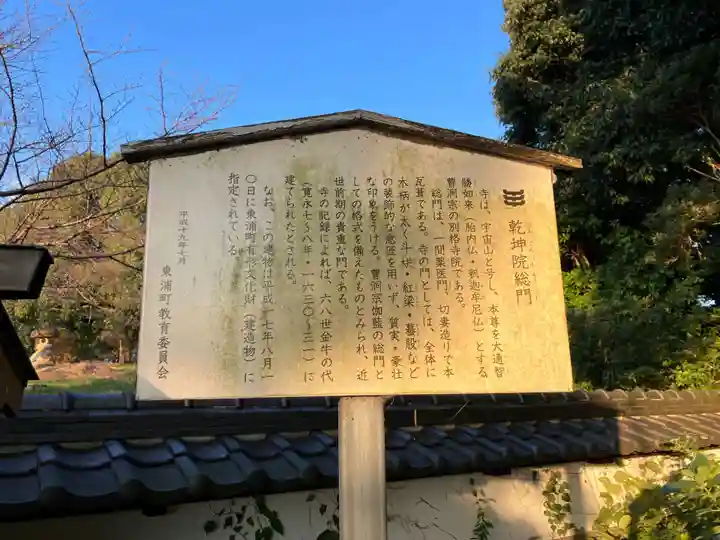 乾坤院総門
寺は、宇宙山と号し、本尊を大通智
勝如来（胎内仏・釈迦牟尼仏）とする
曹洞宗の別格寺院である。
総門は、一間薬医門、切妻造りで本
瓦葺である。寺の門としては、全体に
木柄が太く斗栱・紅梁・蟇股など
の装飾的な意匠を用いず、質実・豪壮
な印象をうける。曹洞宗伽藍の総門と
しての格式を備えたものとみられ、近
世前期の貴重な門である。
寺の記録によれば、六八世金牛の代
（寛永七～八年・一六三〇～三一）に
建てられたとされる。
なお、この建物は平成一七年八月一
〇日に東浦町有形文化財（建造物）に
指定されている。
平成十九年七月
東浦町教育委員会